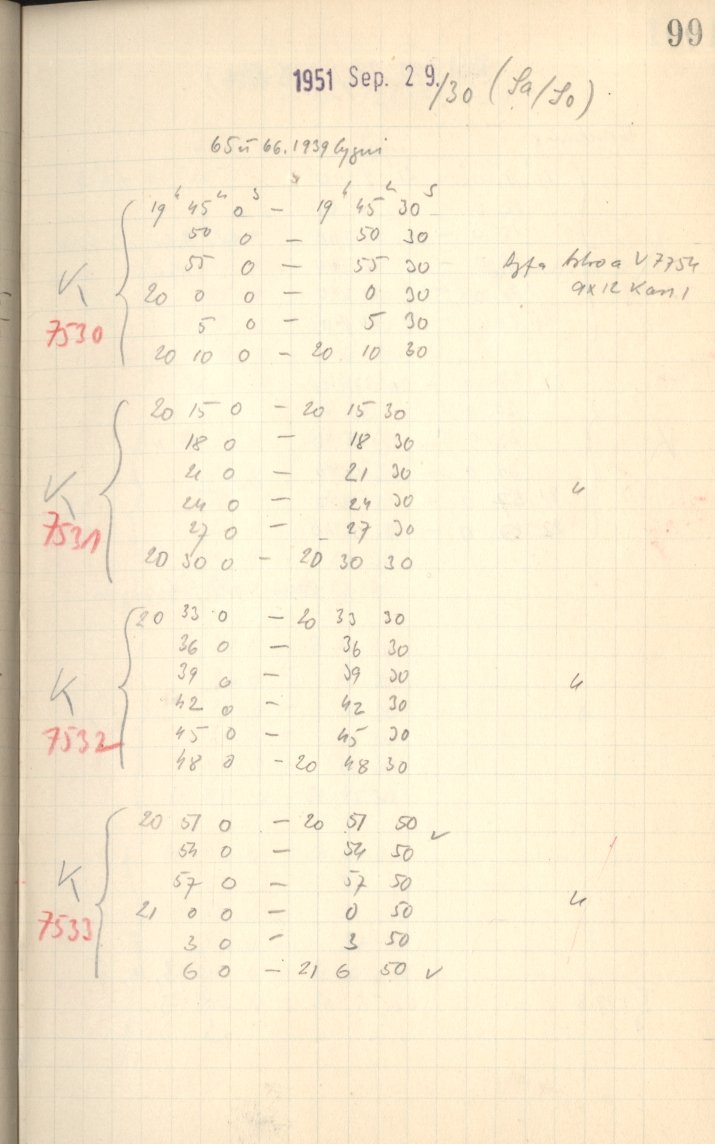 99
1951 Sep. 29./30 (Sa/So)
65 ū 66.1939 Cygni
19ʰ 45ᵐ 0ˢ - 19ʰ 45ᵐ 30ˢ
50 0 - 50 30
55 0 - 55 30
Agfa Astro V7754
20 0 0 - 0 30
9x12 Kam 1
K
5 0 - 5 30
7530
20 10 0 - 20 10 30
20 15 0 - 20 15 30
18 0 - 18 30
21 0 - 21 30
K
24 0 - 24 30
"
27 0 - 27 30
7531
20 30 0 - 20 30 30
20 33 0 - 20 33 30
36 0 - 36 30
39 0 - 39 30
"
K
42 0 - 42 30
45 0 - 45 30
7532
48 0 - 20 48 30
20 51 0 - 20 51 50 v
54 0 - 54 50
57 0 - 57 50
K
21 0 0 - 0 50
"
7533
3 0 - 3 50
6 0 - 21 6 50 v